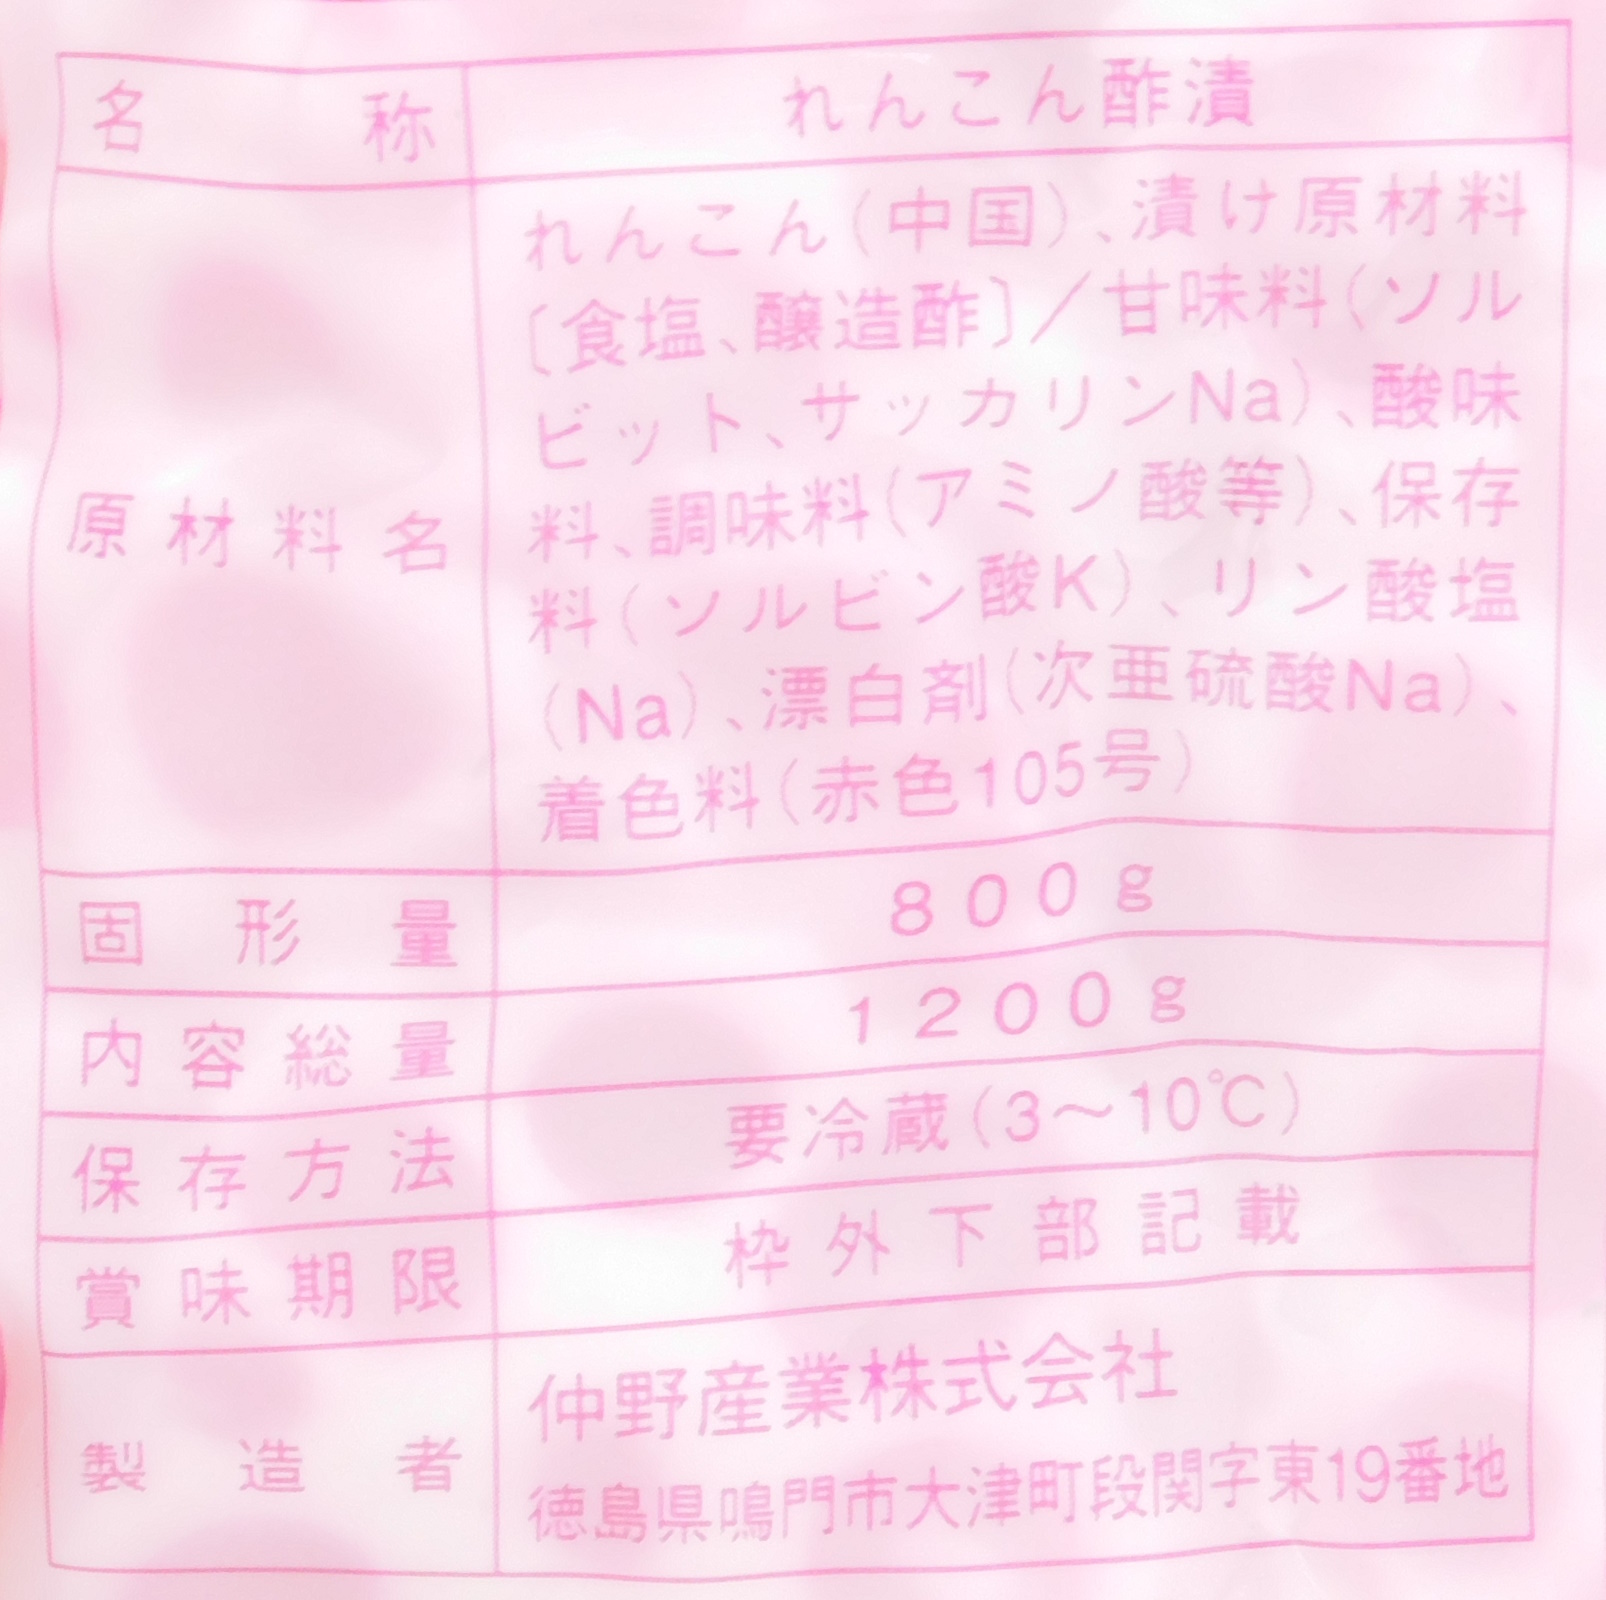 名称 れんこん酢漬
原材料名 れんこん(中国)、漬け原材料
〔食塩、醸造酢〕／甘味料(ソル
ビット、サッカリンNa)、酸味
料、調味料(アミノ酸等)、保存
料(ソルビン酸K)、リン酸塩
(Na)、漂白剤(次亜硫酸Na)、
着色料(赤色105号)
固形量 800g
内容総量 1200g
保存方法 要冷蔵(3～10℃)
賞味期限 枠外下部記載
製造者 仲野産業株式会社
徳島県鳴門市大津町段関字東19番地